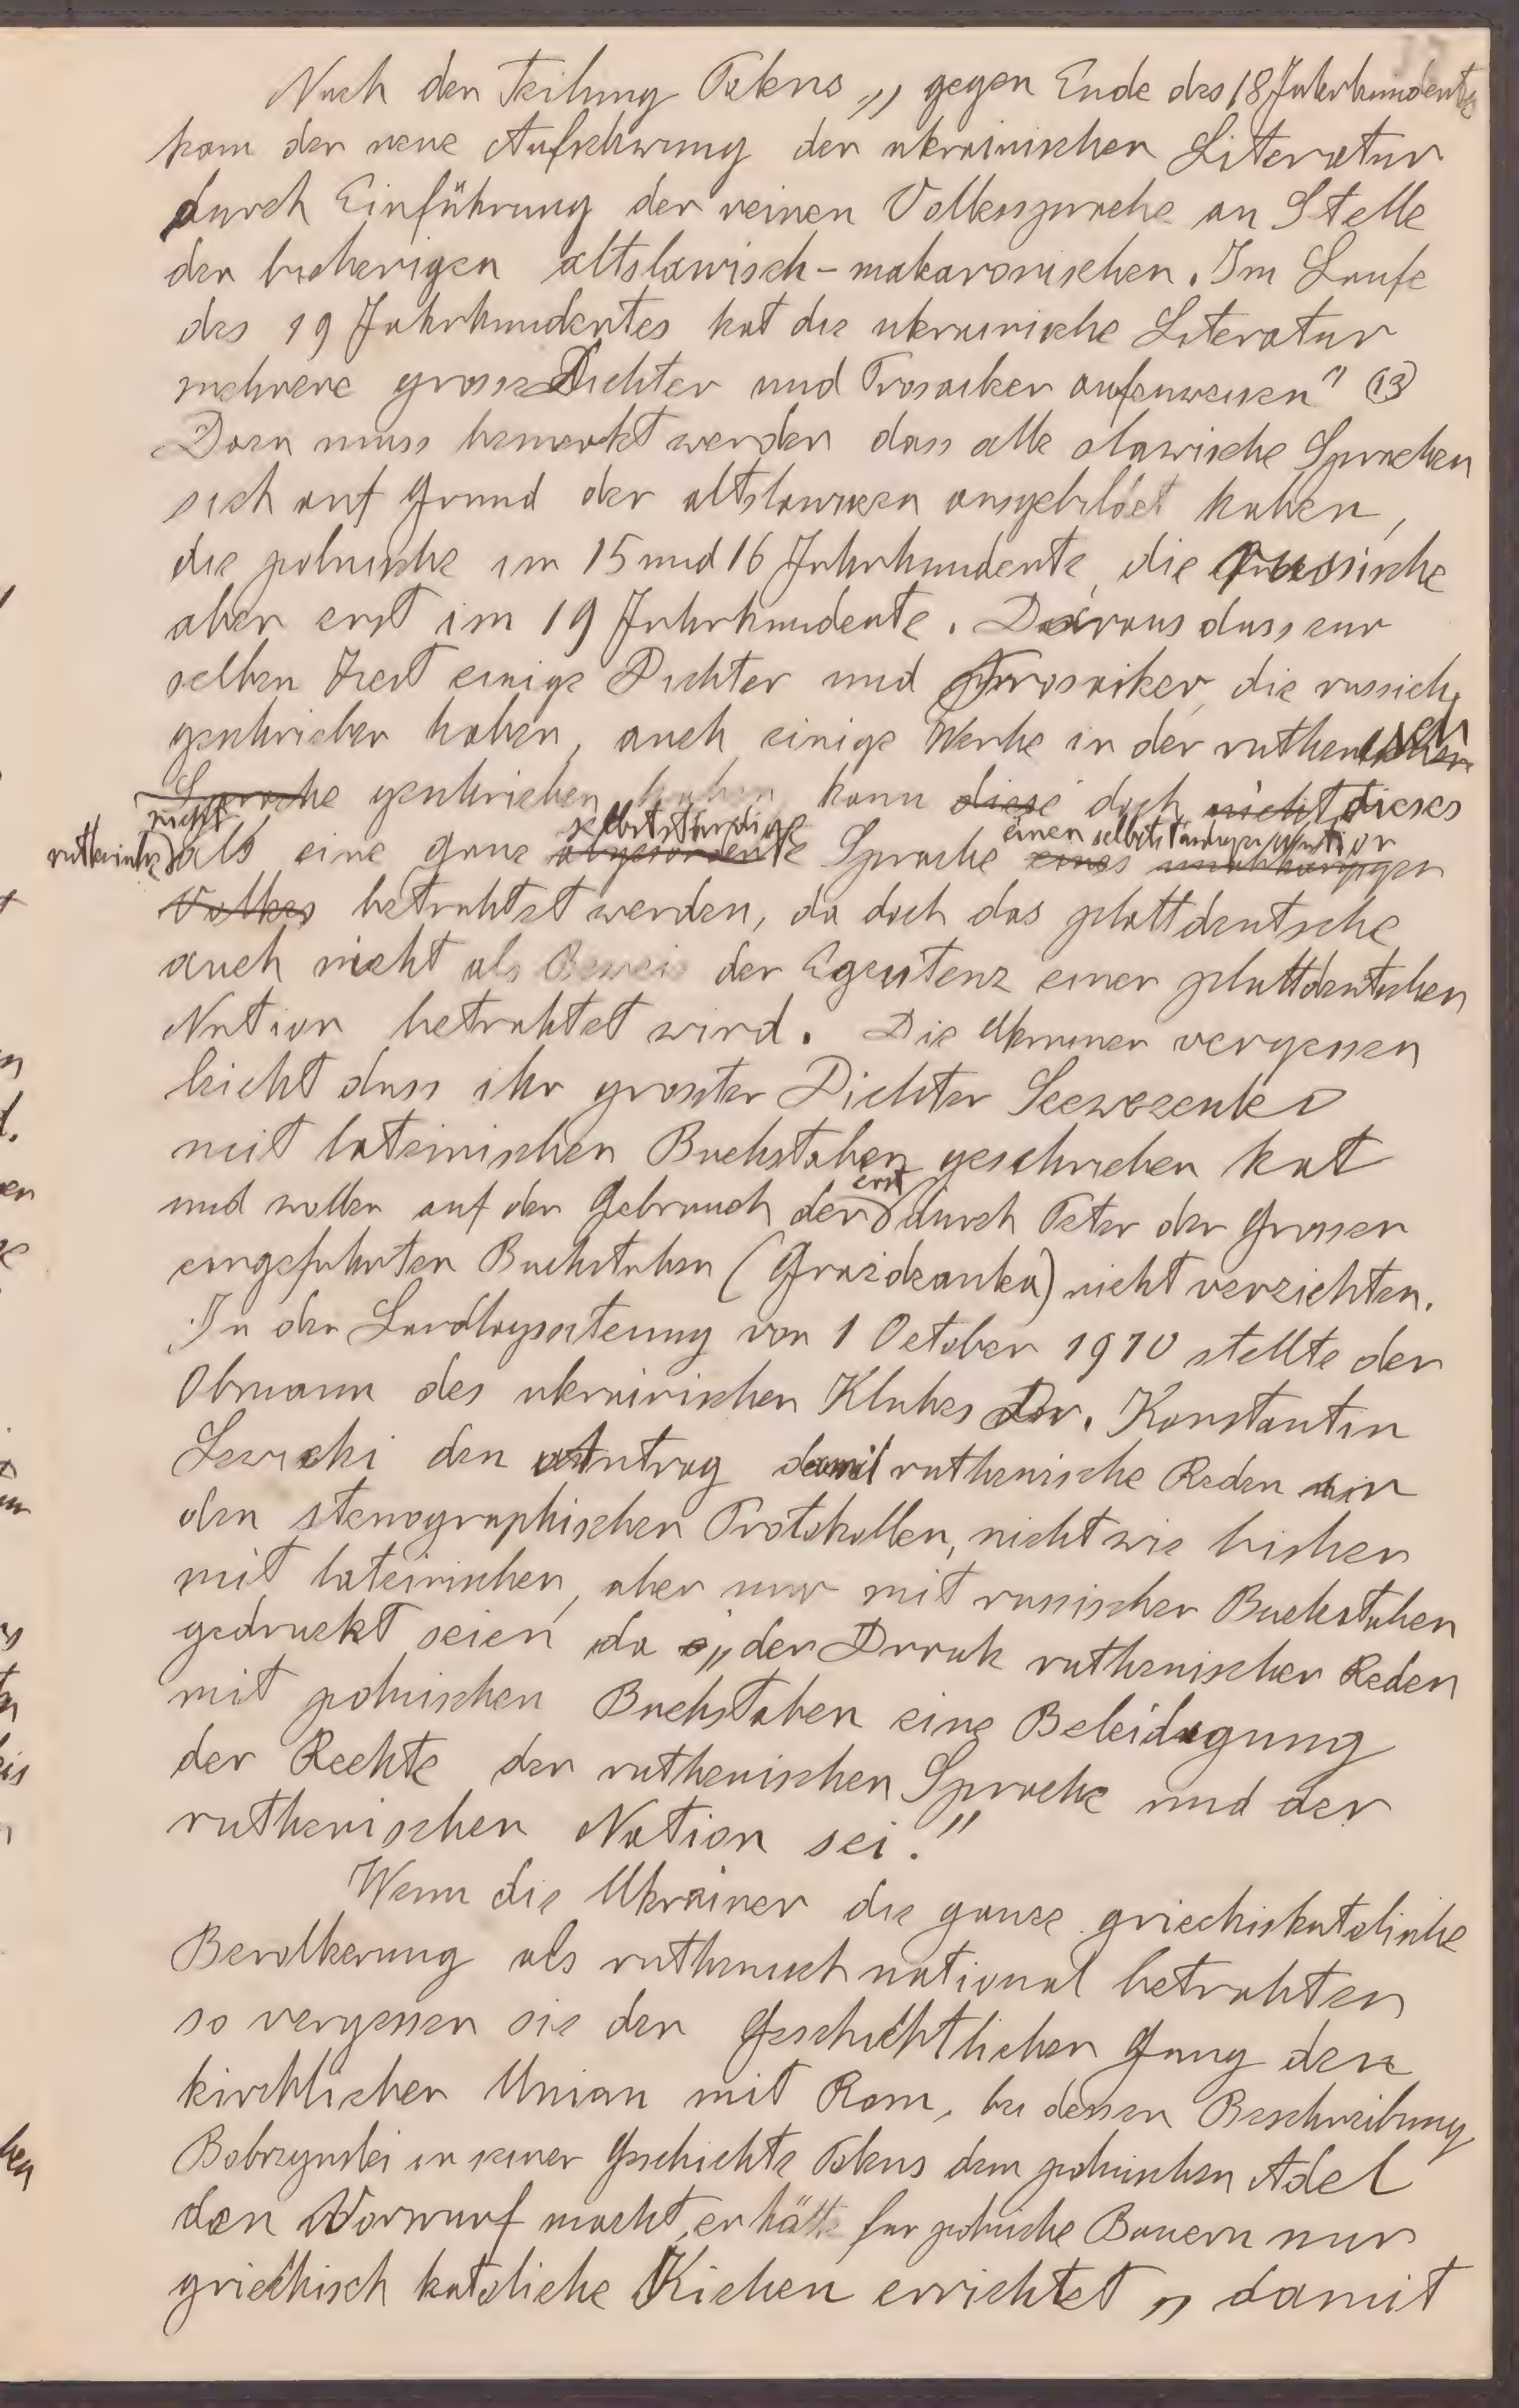 Nach den Teilung Polens „ gegen Ende des 18 Jahrhundents
kam der neue Aufschwung der ukrainischen Literatur
durch Einführung der reinen Volkssprache an Stelle
der bisherigen altslawisch-makaronischen. Im Laufe
des 19 Jahrhundertes hat die ukrainische Literatur
mehrere grosse Dichter und Prosaiker aufzuweisen" (13)
Dazu muss bemerkt werden dass alle slawische Sprachen
sich auf Grund der altslawischen ausgebildet haben,
die polnische im 15 und 16 Jahrhunderte, die russische
aber erst im 19 Jahrhunderte. Daraus dass zur
selben Zeit einige Dichter und Prosaiker, die russich
geschrieben haben, auch einige Werke in der ruthenisch
Sprache geschrieben haben kann diese doch nicht dieses
nicht selbstständige einen selbstständigen Nation
ruthenische als eine ganz abgesonderte Sprache eines unabhängigen
Volkes betrahtet werden, da doch das plattdeutsche
auch nicht als Beweis der Egzistenz einer plattdeutschen
Nation betrahtet wird. Die Ukrainer vergessen
leicht dass ihr grosster Dichter Szewczenko
mit lateinischen Buchstaben geschrieben hat
und wollen auf den Gebrauch der erst durch Peter den Grossen
eingefuhrten Buchstaben (Grazdzanka) nicht verzichten.
In der Landtagssitzung von 1 October 1910 stellte der
Obmann des ukrainischen Klubes Dr. Konstantin
Lewicki den Antrag damit ruthenische Reden in
den stenographischen Protokollen, nicht wie bisher
mit lateinischen, aber nur mit russischen Buchstaben
gedruckt seien, da „der Druck ruthenischer Reden
mit polnischen Buchstaben eine Beleidigung
der Rechte der ruthenischen Sprache und der
ruthenischen Nation sei."
Wenn die Ukrainer die ganze griechiskatolische
Bevolkerung als ruthenisch national betrahten
so vergessen sie den Geschichtlichen Gang der
kirchlichen Union mit Rom, bei dessen Beschreibung
Bobrzynski in seiner Geschichte Polens dem polnischen Adel
den Vorwurf macht, er hätte fur polnische Bauern nur
griechisch katoliche Kichen errichtet „ damit